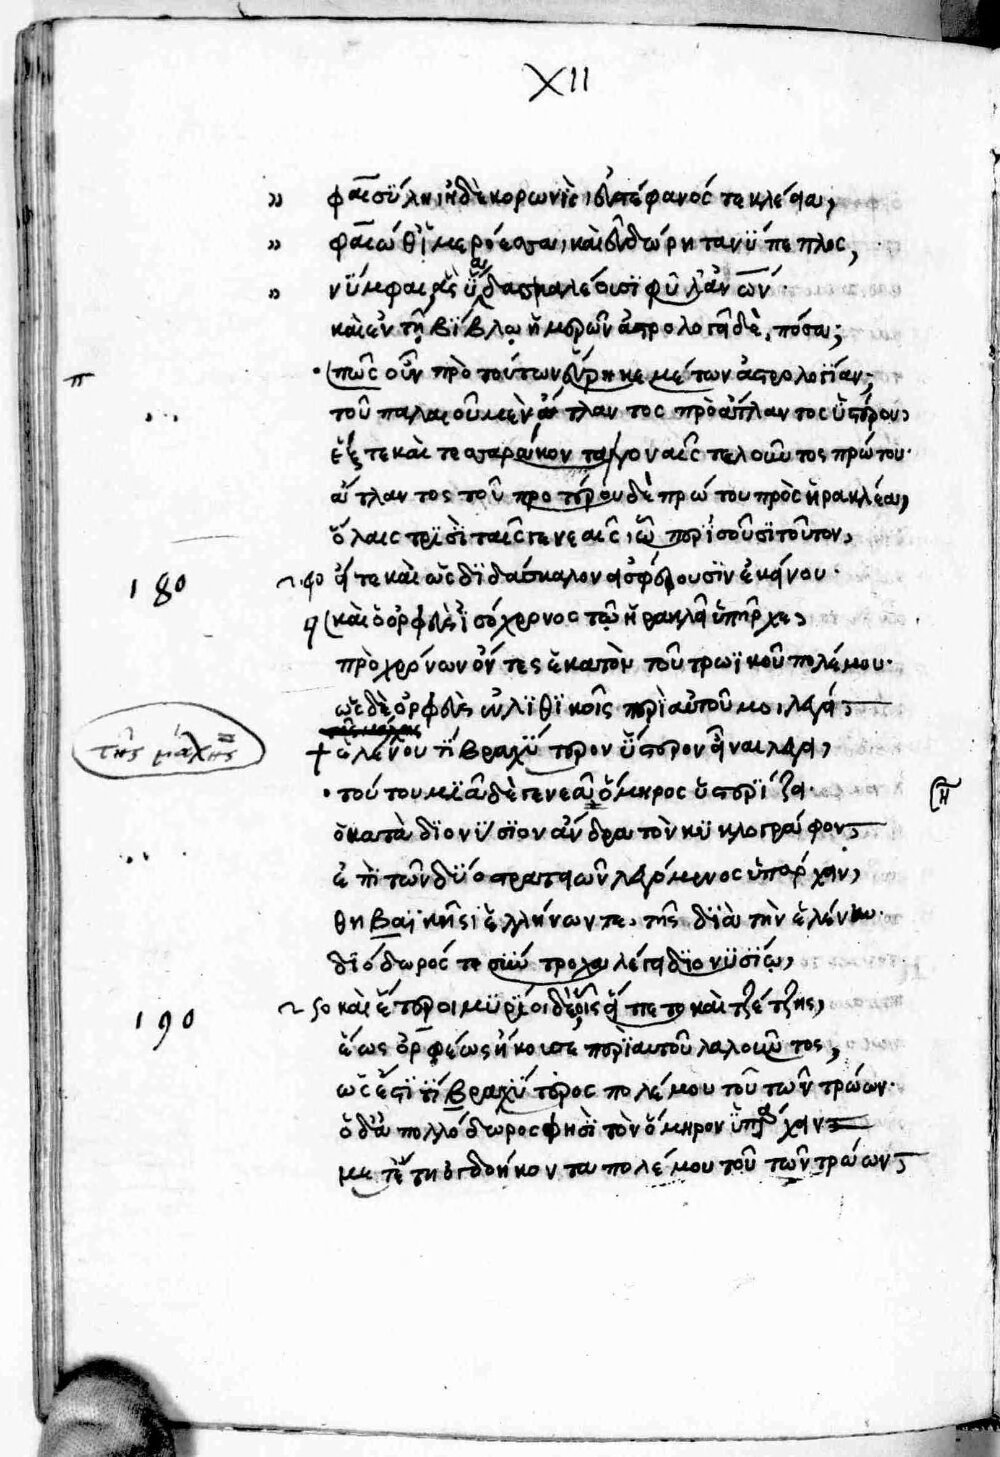 XII
» φαισύλη ἠδὲ κορωνὶς, ἐυστέφανός τε κλέεια,
» φαιώ θ' ἱμερόεσσα, καὶ εὐδώρη τανύπεπλος,
» νύμφαι ἃς ὑάδας καλέουσι φῦλ' ἀνων·
καὶ ἐν τῇ βίβλῳ ἡμερῶν ἀστρολογεῖ δὲ, πόσα;
π · πῶς οὖν πρὸ τούτων εὕρηκέ με τῶν ἀστρολογίαν;
τοῦ παλαιοῦ μὲν ἄτλαντος πρὸ ἄτλαντος ὑστέρου,
ἕξ τε καὶ τεσσαράκοντα γοναῖς τελοῦντος πρώτου·
ἄτλαντος τοῦ προτέρου δὲ πρώτου πρὸς ἡρακλέα,
ὅλαις τρισὶ ταῖς γενεαῖς, ὧ περισοῦσι τοῦτον,
180 εἴτε καὶ ὡς διδάσκαλον εἰσφέρουσιν ἐκείνου·
καὶ ὁ ὀρφεὺς ἰσόχρονος τῷ ἡρακλεῖ ὑπῆρχε,
πρὸ χρόνων ὄντες ἑκατὸν τοῦ τρωϊκοῦ πολέμου·
ὡς δὲ ὀρφεὺς ἐν λιθικοῖς περὶ αὐτοῦ μοι λέγει,
τῆς μάχης
+ ἑλένου τι βραχύτερον ὕστερον εἶναι λέγει,
· τούτου μιᾶ δὲ γενεᾶ ὅμηρος ὑστερίζει·
ὁ κατὰ διονύσιον ἄνδρα τὸν κυκλογράφον,
ἐπὶ τῶν δύο στρατειῶν λεγόμενος ὑπάρχειν,
θηβαϊκῆς, ἑλλήνων τε, τῆς διὰ τὴν ἑλένην·
διόδωρός τε συντροχα λέγει διονυσίῳ,
190 καὶ ἕτεροι μυρίοι δὲ οἷς εἵπετο καὶ τζέτζης,
ἕως ὀρφέως ἤκουσε περὶ αὐτοῦ λαλοῦντος,
ὡς ἔστι τι βραχύτερος πολέμου τοῦ τῶν τρώων·
ὁ δ' ἀπολλόδωρος φησὶ τὸν ὅμηρον ὑπάρχειν
μετ' ἔτη ὀγδοήκοντα πολέμου τοῦ τῶν τρώων,